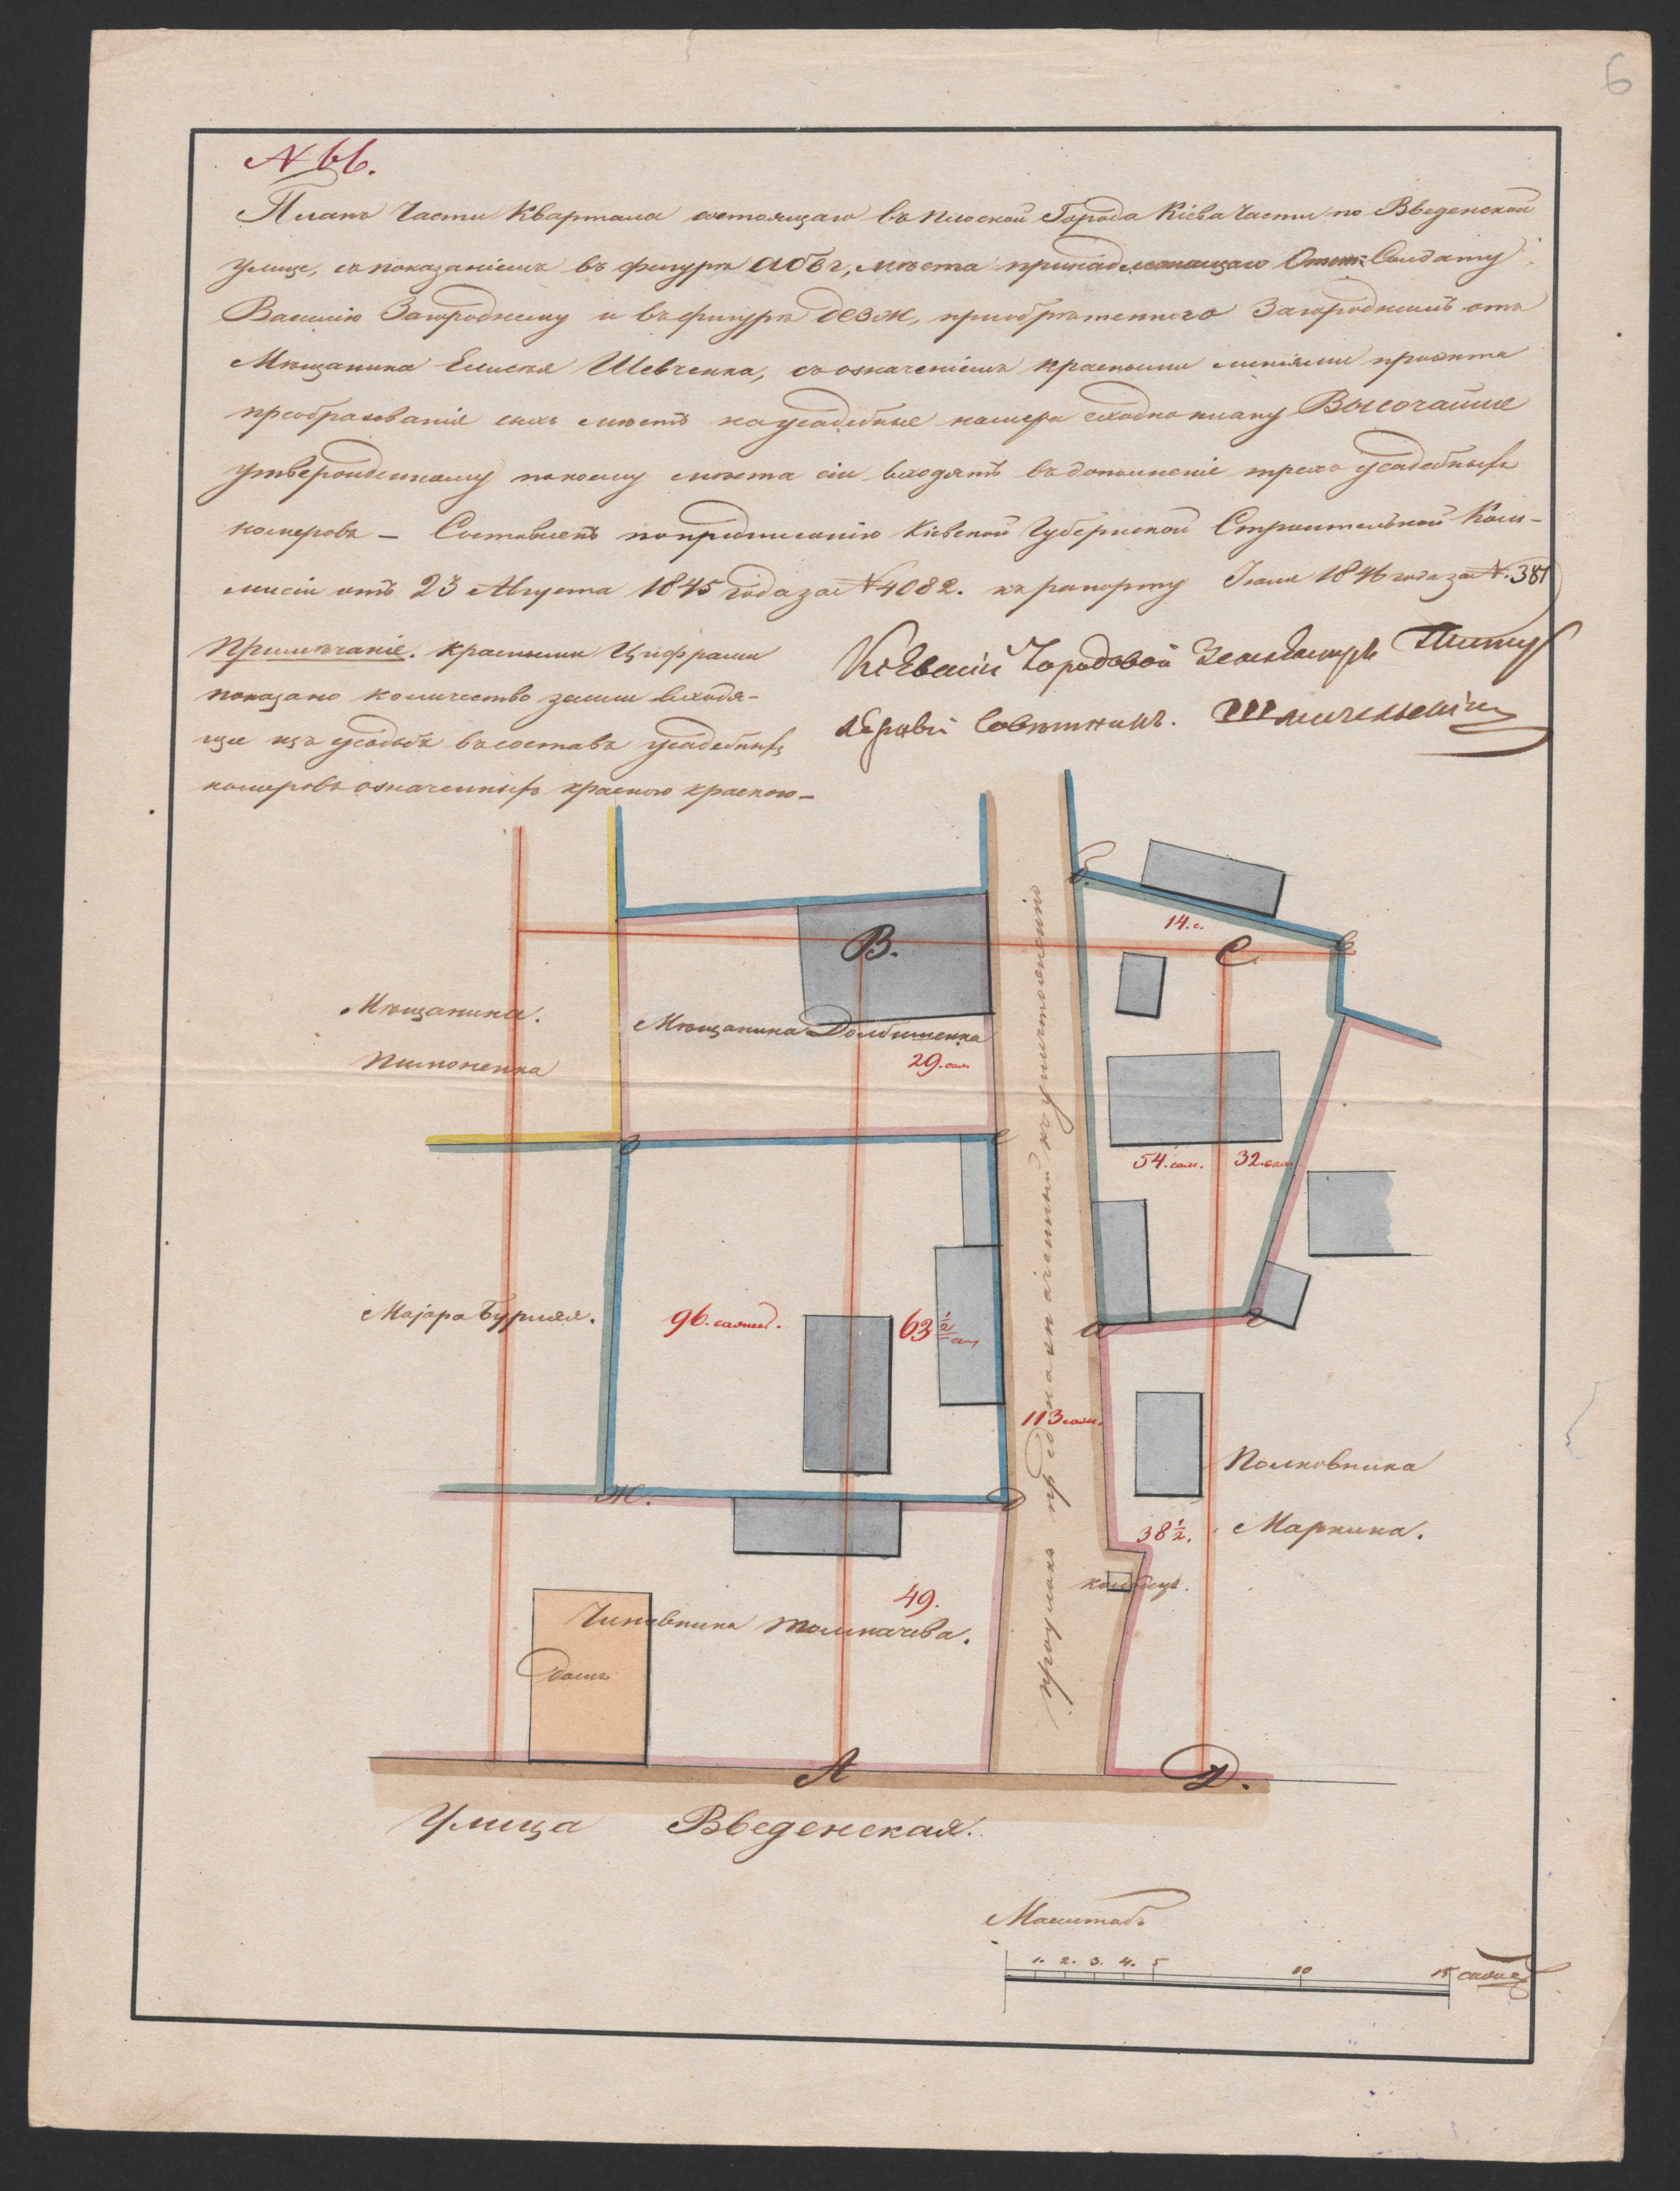 6
№ 66.
Планъ Части Квартала состоящаго въ Плоской Города Кіева Части по Введенской
улице, съ показаніемъ въ фигурѣ абвг, мѣста принадлежащаго Отст: Солдату
Василію Загороднему и въ фигурѣ дезж, пріобрѣтенного Загороднимъ отъ
Мѣщанина Елисея Шевченка, съ означеніемъ красными линіями проэкта
преобразованія сихъ мѣстъ на усадебные номера сходно плану Высочайше
утвержденному по коему мѣста сіи входятъ въ дополненіе трехъ усадебныхъ
номеровъ — Составленъ по предписанію Кіевской Губернской Строительной Ком-
мисіи отъ 23 Августа 1845 года за № 4082. къ рапорту 1846 года за №. 381
Примѣчаніе. Красными Цифрами
показано количество земли входя-
щее изъ усадьбъ въ составъ усадебныхъ
номеровъ означенныхъ красною краскою —
Кіевскій Городовой Землемѣръ
Совѣтникъ.
б.
14. с.
в
В.
С.
Мѣщанина.
Пилоненка
Мѣщанина Долбишенка
29. саж
з
е
54. саж.
32. саж
Маіора Бурляя.
96. сажен.
63 1/2 са
а
г
проулокъ предназначенный къ уничтоженію
113 саж.
ж.
д
Полковника
Маркина.
38 1/2.
колодецъ.
49.
Чиновника Толмачева.
домъ
А
Д.
Улица Введенская.
Масштабъ
1. 2. 3. 4. 5 10 15 сажен